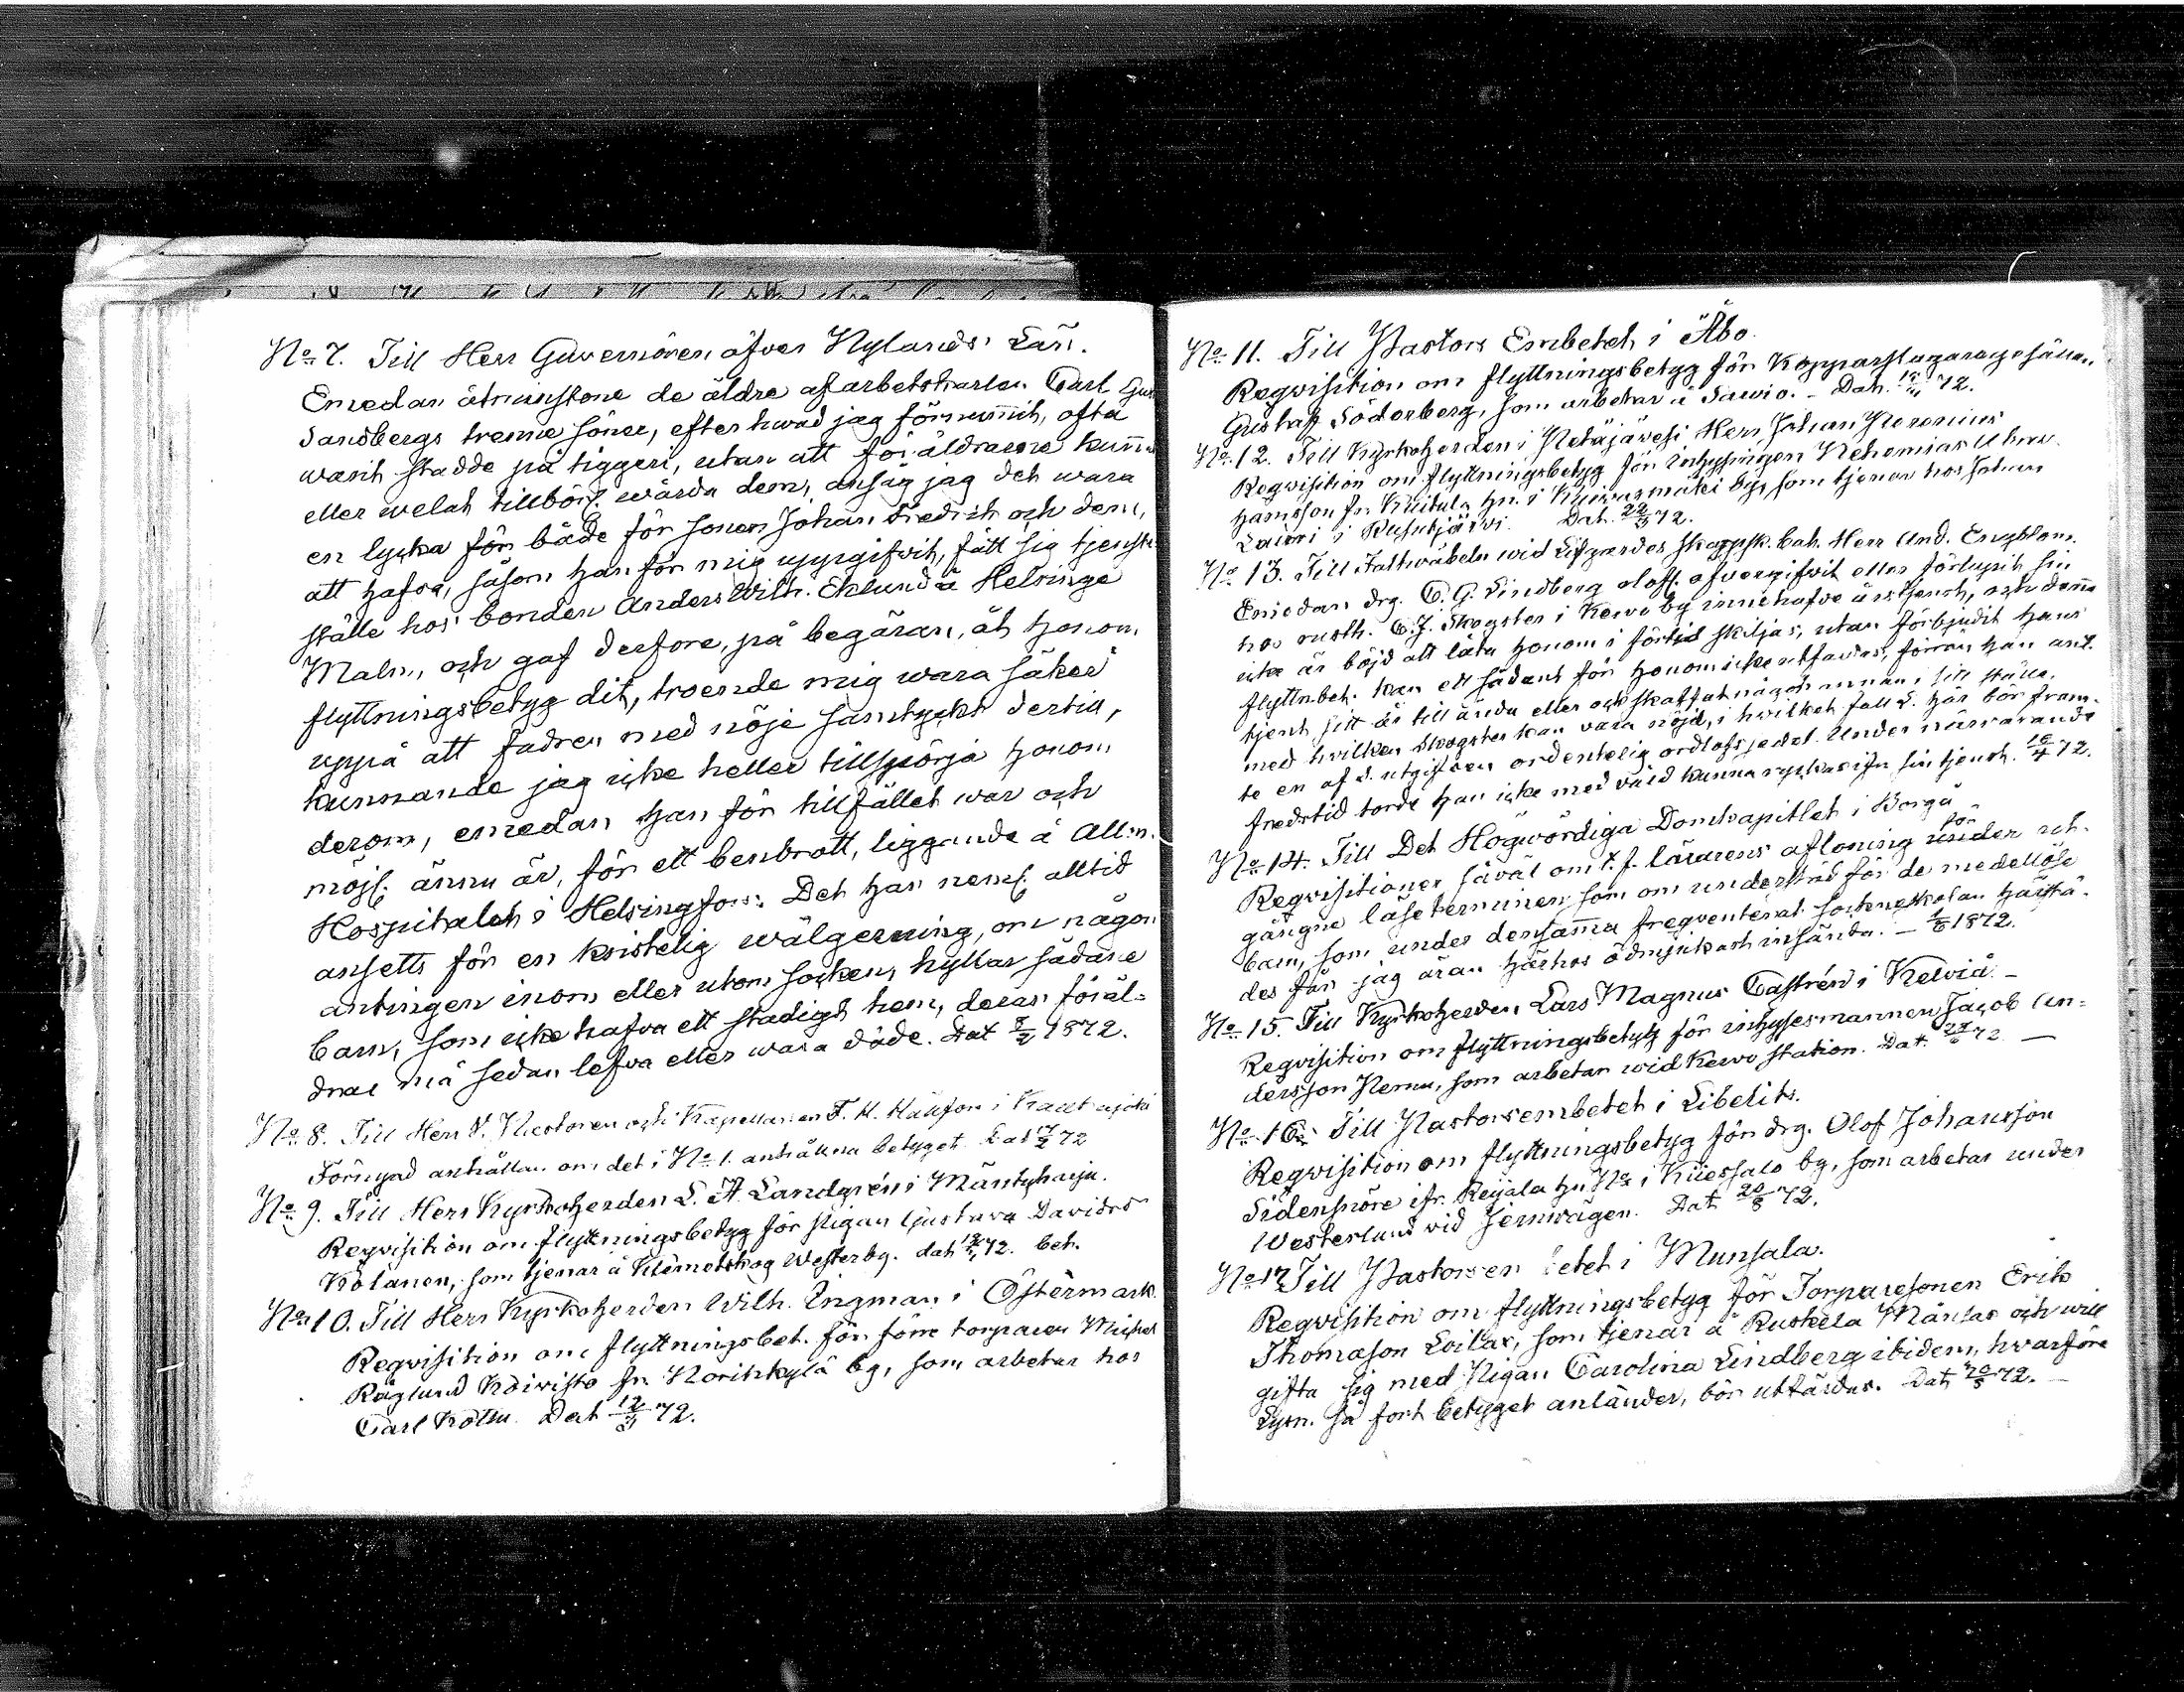 No 7. Till Herr Guvernören öfver Nylands Län.
Emedan åtminstone de äldre af arbetskarlen Carl Gust
Sandbergs trenne söner, efter hwad jag förnummit, ofta
warit stadde på tiggeri, utan att föräldrarne kunnat
eller welat tillbörl. wårda dem, ansåg jag det wara
en lycka för både för sonen Johan Fredrik och dem,
att hafva, såsom han för mig uppgifvit, fått sig tjenste
ställe hos bonden Anders Wilh. Eklund å Helsinge
Malm, och gaf derfore, på begäran, åt honom
flyttningsbetyg dit, troende mig wara säker
uppå att fadren med nöje samtyckt dertill,
kunnande jag icke heller tillspörja honom
derom, emedan han för tillfället war och
möjl. ännu är, för ett benbrott, liggande å Allm.
Hospitalet i Helsingfors. Det har neml. alltid
ansetts för en kristelig wälgerning, om någon
antingen inom eller utom socken, hyllar sådane
barn, som icke hafva ett stadigt hem, deras föräl=
drar må sedan lefva eller wara döde. Dat 7/2 1872.
No 8. Till Herr V. Pastoren och Kapellanen F. H. i
Förnyad anhållan om det i No 1. anhållna betyget Dat 17/2 72
No 9. Till Herr Kyrkoherden L. A. Landgrén i Mäntyharju.
Reqvisition om flyttningsbetyg för pigan Gustava Davidsd
Kölänen, som tjenar å Klemetskog Westerbg. dat 72. bet.
No 10. Till Herr Kyrkoherden Wilh. Ingman i Östermark
Reqvisition om flyttningsbet. för förre torparen Michel
Råglund Koivisto fr. Norinkylä by, som arbetar hos
Carl Dat 12/3 72.
No 11. Till Pastors Embetet i Åbo.
Reqvisition om flyttningsbetyg för Kopparslagaregesällen
Gustaf Söderberg, som arbetar å Sawio. - Dat. 72.
No 12. Till Kyrkoherden i Petäjävesi Herr Johan
Reqvisition om flyttningsbetyg för inhysingen Nehemias
Hansson fr. Kuitula hn. i by, som tjenar hos Johan
i Rusutjärvi. Dat. 22/3 72.
No 13. Till Fältwäbeln wid Lifgardes skarpsk. bat. Herr And. Engblom.
Emedan drg. C. G. Lindberg olofl. afvergifvit eller förlupit sin
hos rusth. C. J. Skogster i Kervo by innehafva årstjenst, och denne
icke är böjd att låta honom i förtid skiljas, utan förbjudit hans
flyttnbet. kan ett sådant för honom icke utfärdas, förrän han ant.
tjent sitt år till ända eller och skaffat någon annan i sitt ställe,
med hwilken Skogster kan vara nöjd, i hwilket fall L. här bör fram=
te en af S. utgifven ordentelig orlofssedel. Under närvarande
fredstid torde han icke med våld kunna ryckas ifr. sin tjenst. 16/4 72.
No 14. Till Det Högwördiga Domkapitlet i Borgå
Reqvisitioner såväl om t. f. lärarens aflöning för under ut=
gångne läseterminen som om understöd för de medellöse
barn, som under densamma freqventerat sockneskolan härstä=
des får jag äran härhos ödmjukast insända. - 1/6 1872.
No 15. Till Kyrkoherden Lars Magnus Castrén i Kelviå -
Reqvisition om flyttningsbetyg för inhysesmannen Jacob An=
dersson som arbetar wid Kervo station. Dat. 72 -
No 16. Till Pastorsembetet i Libelits.
Reqvisition om flyttningsbetyg för drg. Olof Johansson
Sidensnöre ifr. Reijala hn No i Kuessalo by, som arbetar under
Westerlund vid Jernvägen. Dat 20/8 72.
No 17 Till Pastorsembetet i Munsala.
Reqvisition om flyttningsbetyg för Torparesonen Erik
Thomason Loilax, som tjenar å Ruskela Mäntas och will
gifta sig med Pigan Carolina Lindberg ibidem, hwarföre
Lysn. så fort betyget anländer, bör utfärdas. Dat 20/8 72. -